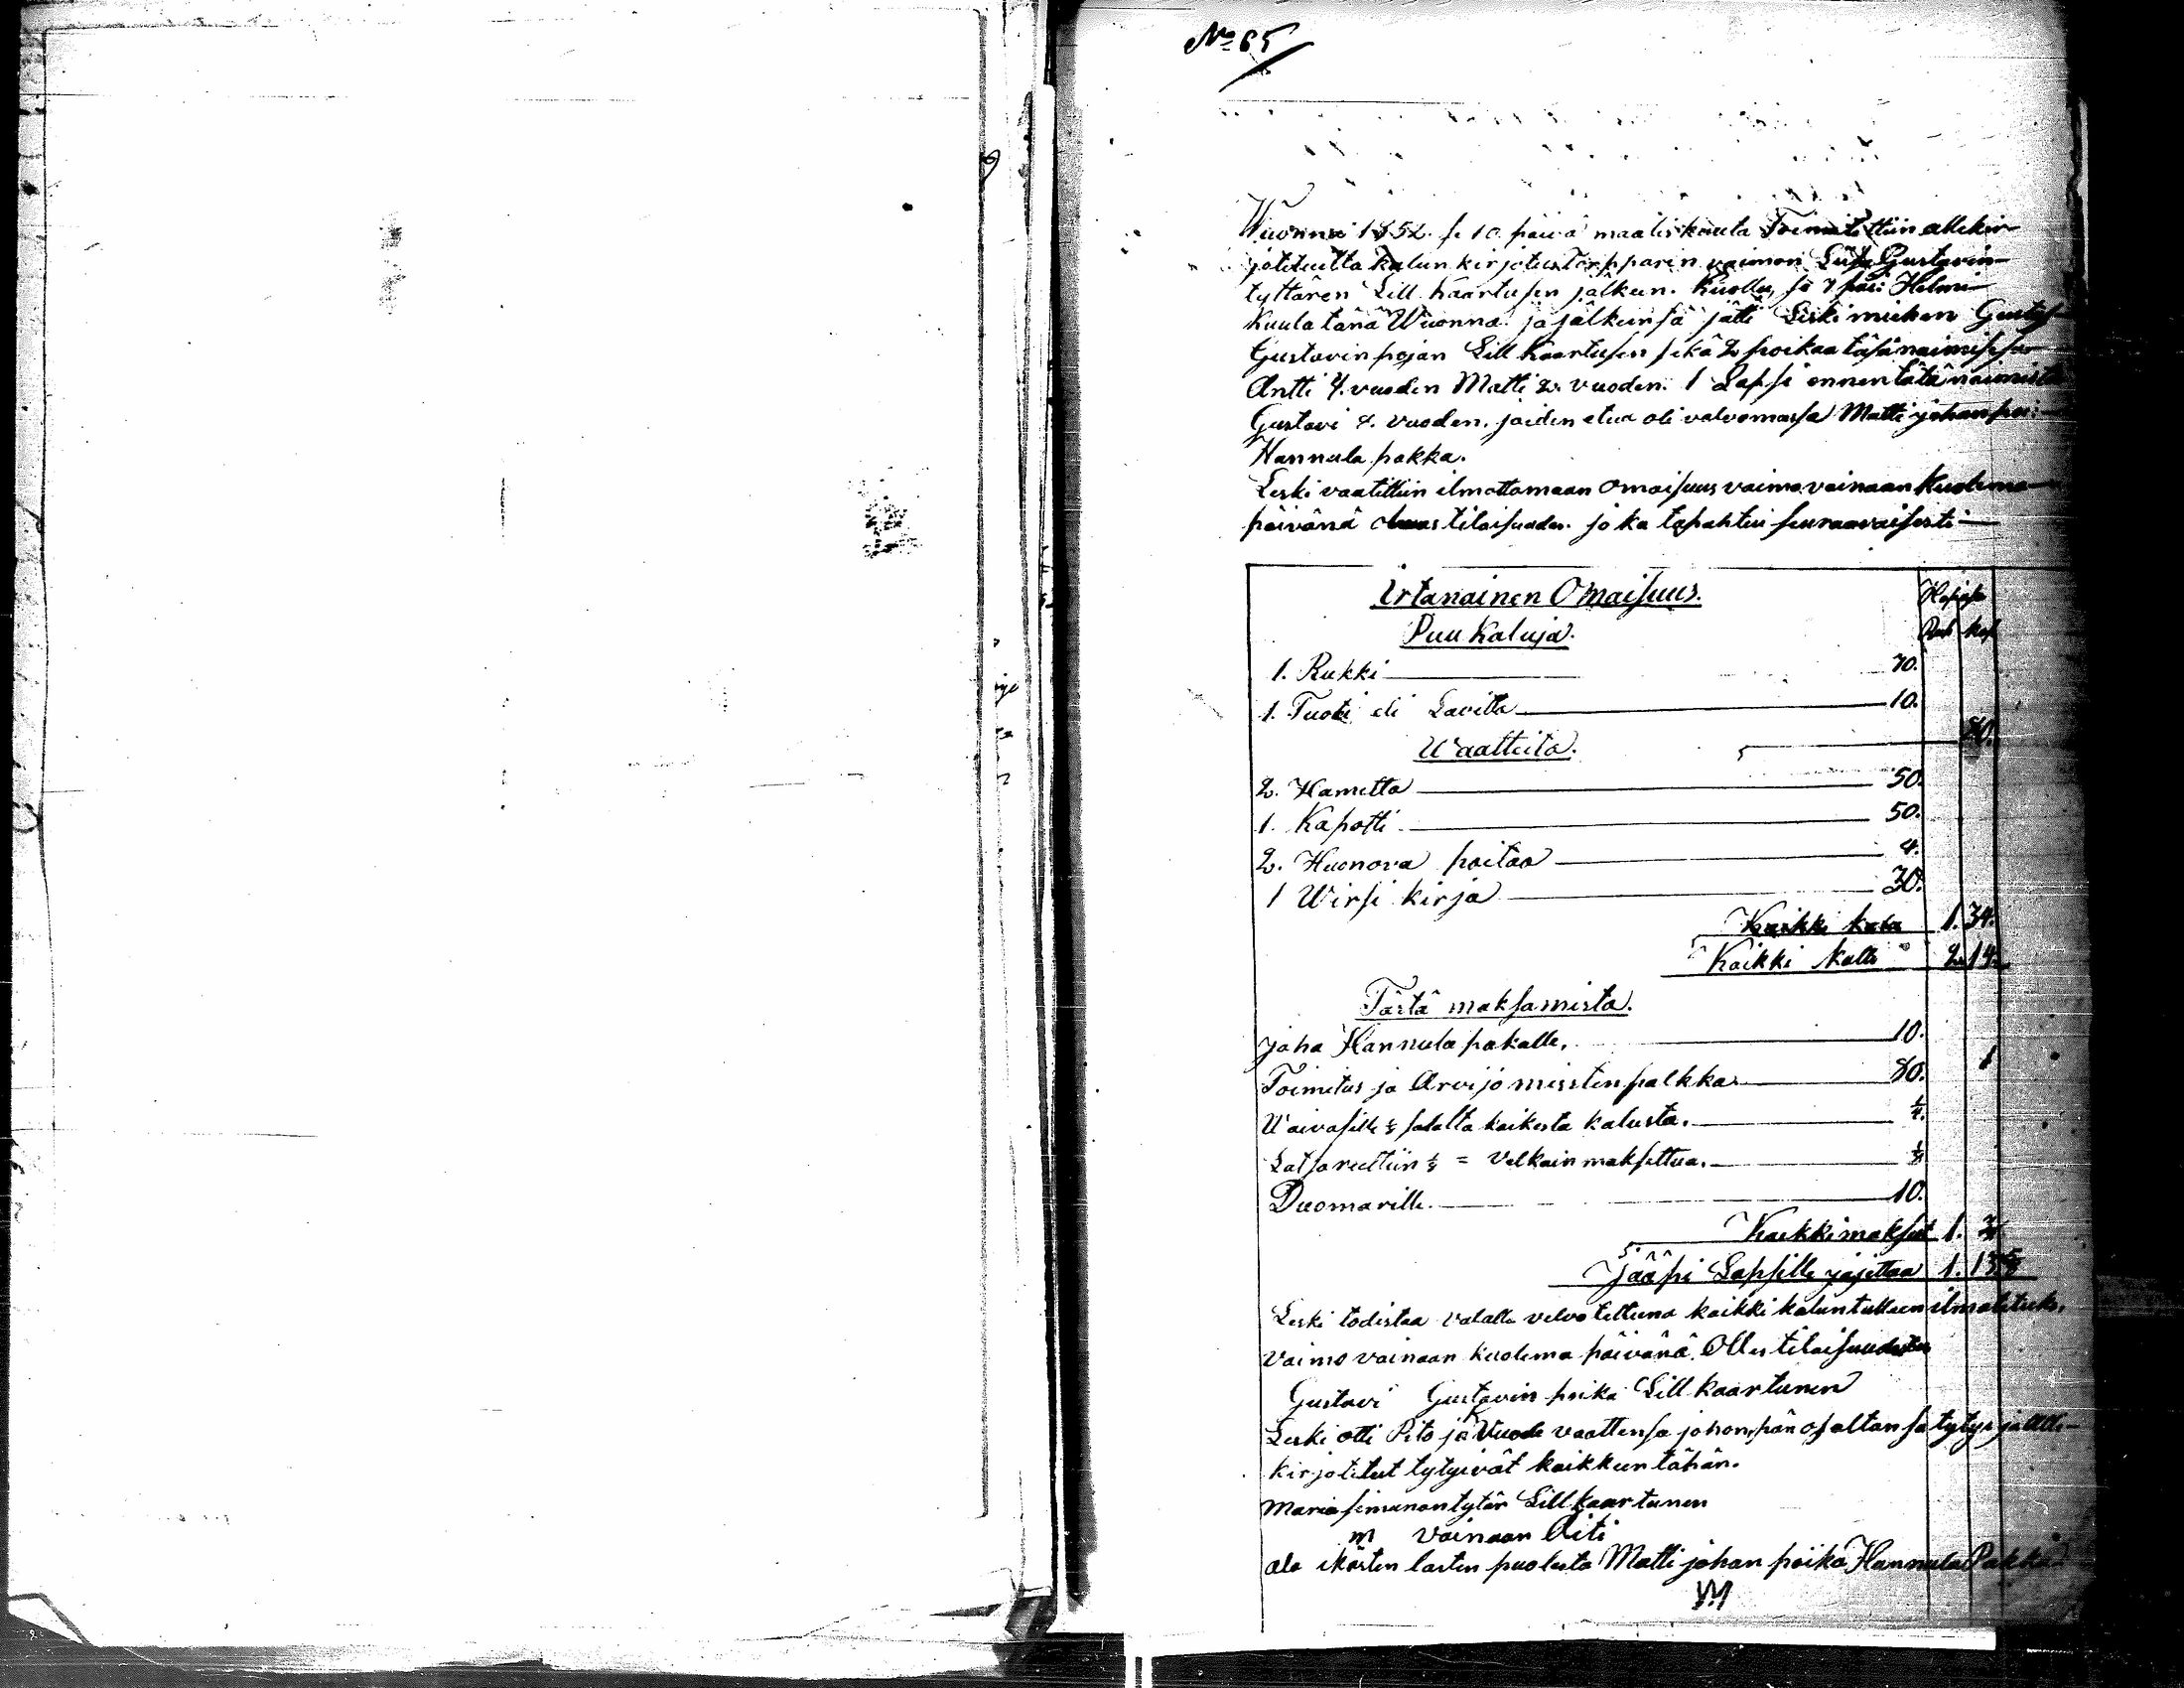 No 65
Wuonna 1852. se 10. päivä maaliskuula Toimitettiin allekir-
jotetuilta kalun kirjotus Torpparin vaimon Liisa Gustavin-
tyttären Lill kaartusen jälkeen. Kuollu, se 7 päi: Helmi-
kuula tänä Wuonna. ja jälkeinsä jätti Leski miehen Gustaf
Gustavinpojan Lill kaartusen sekä 2 poikaa täsä naimisesa
Antti 4. vuoden Matti 2. vuoden. 1 Lapsi ennen tätä naimista
Gustavi 8. vuoden. joiden etua oli valvomassa Matti johanpoi:
Hannula pakka.
Leski vaatittiin ilmottamaan Omaisuus vaimo vainaan kuolema
päivänä tilaisuuden. joka tapahtui seuraavaisesti
Irtanainen Omaisuus. Hopiasa
Puu kaluja. Rub kop
1. Rukki 70.
1. Tuoli eli Lavitta 10.
80.
Waatteita.
2. Hametta 50.
1. Kapotti 50.
2. Huonova paitaa 4.
1 Wirsi kirja 30.
1. 34.
Kaikki kallu 2. 14.
Tästä maksamista.
joha Hannula pakalle. 10.
Toimitus ja Arvijo miesten palkka 80.
Waivasille 1/8 sadalta kaikesta kalusta. 1/4.
Latsarettiin 1/8 = Velkain maksettua. 1/8
Duomarille. 10.
Kaikki maksut 1. 3/8
Jääpi Lapsille jajettaa 1. 13 5/8
Leski todistaa valalla velvotettuna kaikki kalun tulleen ilmotetuksi,
vaimo vainaan kuolema päivänä. Olles tilaisuudesta
Gustavi Gustavin poika Lill kaartunen
Leski otti Pito ja Vuode vaattensa johonpän osaltansa tytys ja alle-
kirjotetut tytyivät kaikkeen tähän.
Maria simunantytär Lill kaartunen
m vainaan Äiti
ala ikästen lasten puolesta Matti johan poika Hannula Pakka